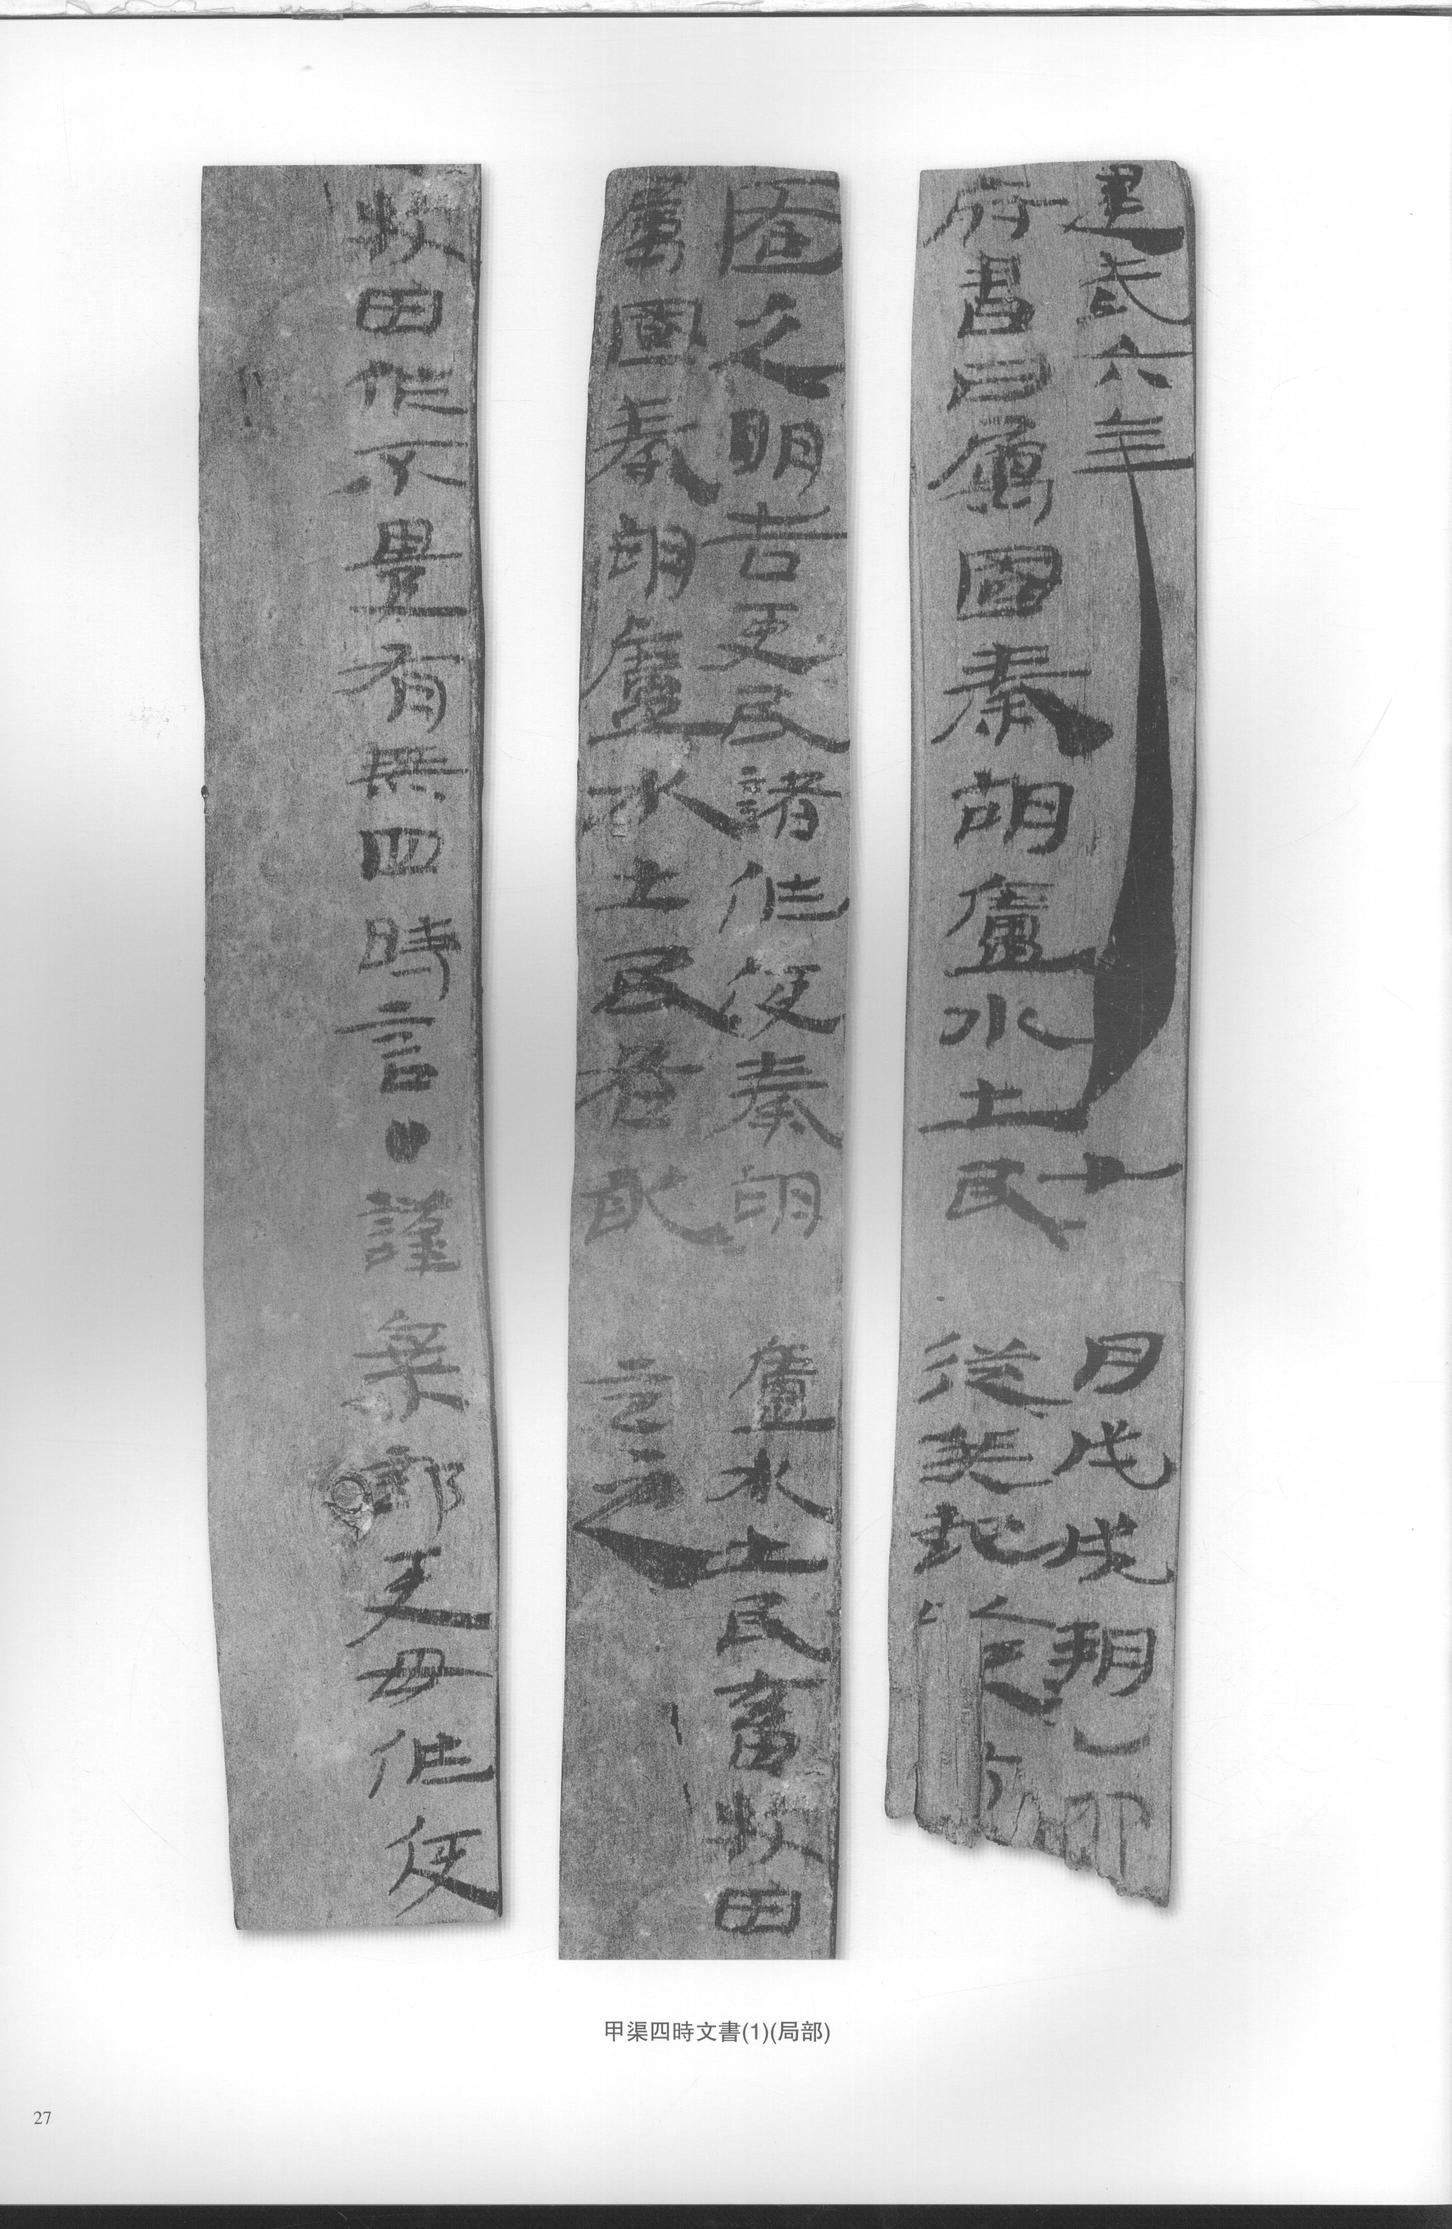 建武六年七月戊戌朔乙卯
府書曰屬國秦胡盧水士民從兵起以
匿之明告吏民諸作使秦胡盧水士民畜牧田
屬國秦胡盧水士民者敢言之
牧田作不遣有無四時言●謹案部吏毋作使
甲渠四時文書(1)(局部)
27